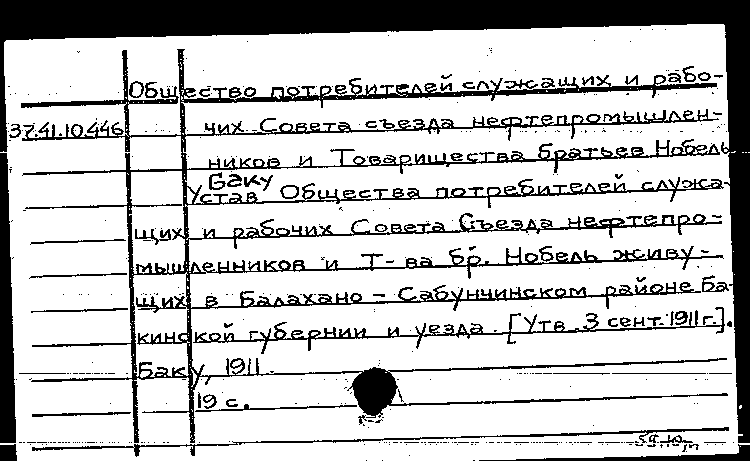 Общество потребителей служащих и рабо-
37.41.10.446 чих Совета съезда нефтепромышлен-
ников и Товарищества братьев Нобель
Баку
Устав Общества потребителей служа-
щих и рабочих Совета Съезда нефтепро-
мышленников и Т-ва бр. Нобель живу-
щих в Балахано-Сабунчинском районе Ба-
кинской губернии и уезда. [Утв. 3 сент. 1911 г.].
Баку, 1911.
19 с.